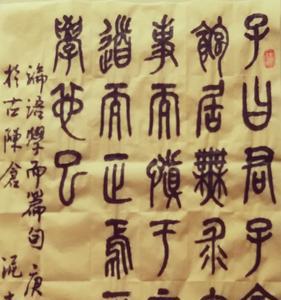 子曰君子食
飽居無求
事而慎于
道而正焉可
學也已
論語學而篇句 庚
於古陳倉 泥